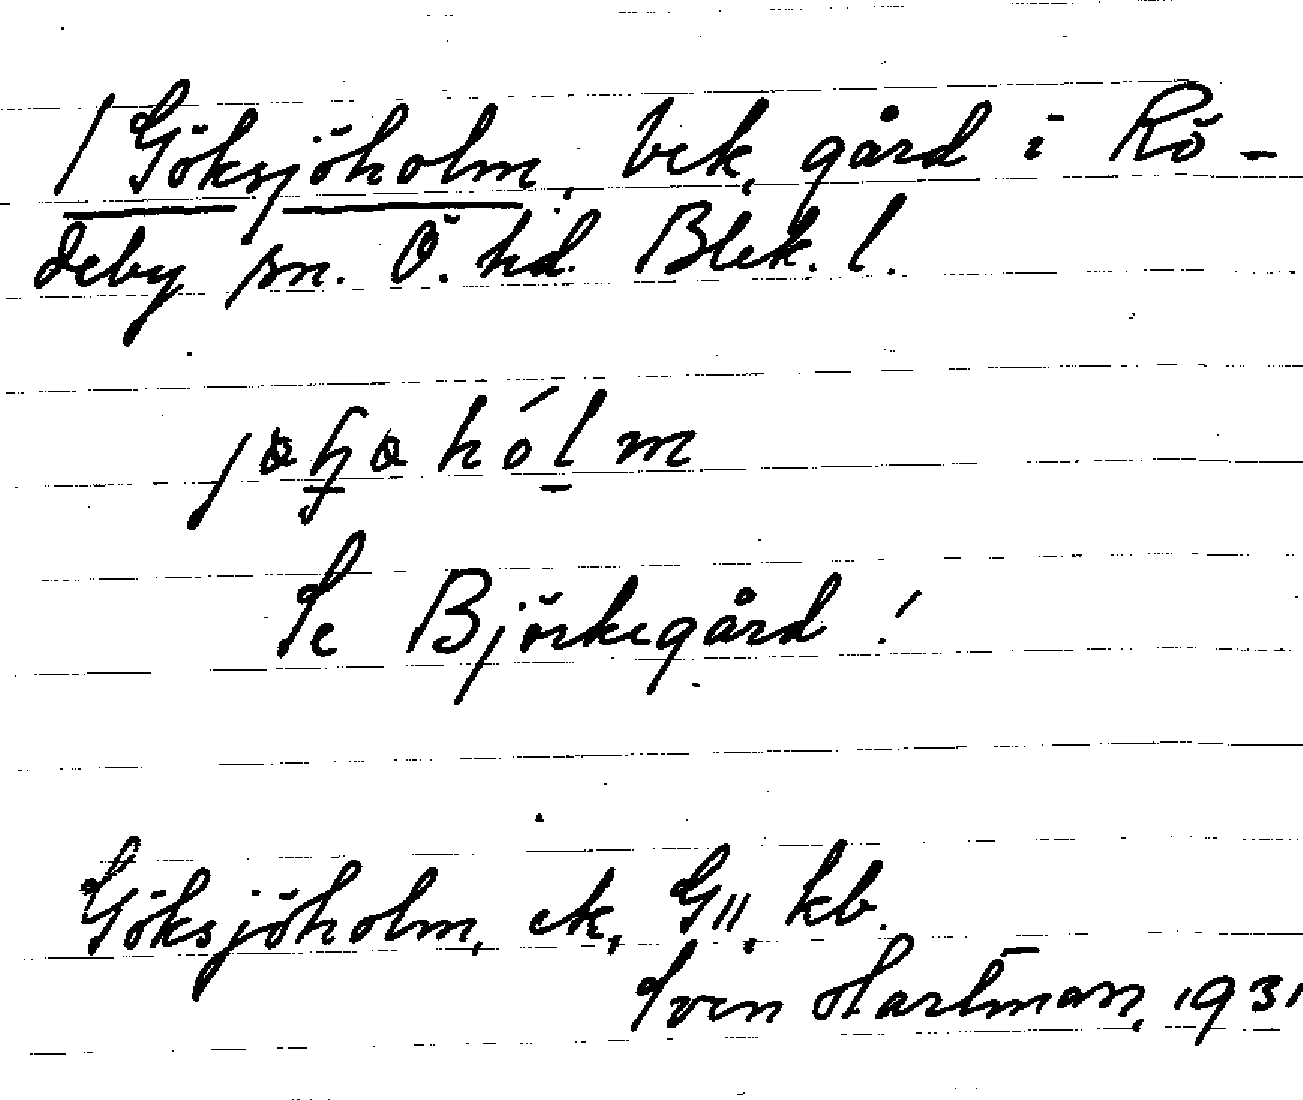 / Göksjöholm, bek, gård i Rö-
deby sn. Ö. hd. Blek. l.
hólm
Se Björkegård!
Göksjöholm, ek, G11, kb.
Sven Hartman, 1931